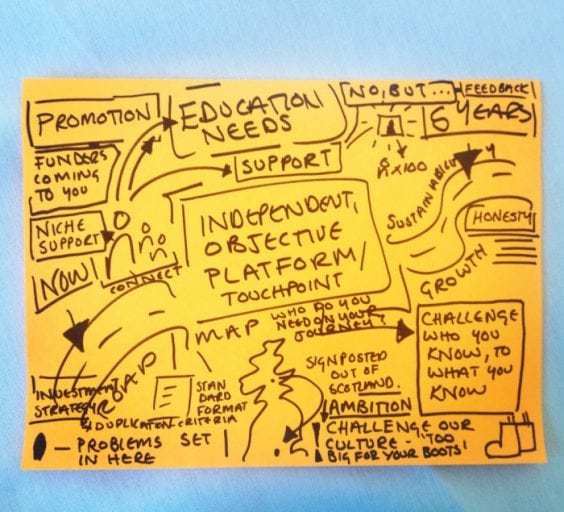 PROMOTION
EDUCATION
NEEDS
NO, BUT...
FEEDBACK
6 YEARS
FUNDERS
COMING
TO YOU
SUPPORT
X100
NICHE
SUPPORT
NOW!
CONNECT
INDEPENDENT,
OBJECTIVE
PLATFORM/
TOUCHPOINT
SUSTAINABILITY
HONESTY
GROWTH
ROAD
MAP
WHO DO YOU
NEED ON YOUR
JOURNEY?
CHALLENGE
WHO YOU
KNOW, TO
WHAT YOU
KNOW
INVESTMENT
STRATEGY
STAN
DARD
FORMAT
CRITERIA
DUPLICATION
SIGNPOSTED
OUT OF
SCOTLAND.
AMBITION
CHALLENGE OUR
CULTURE - "TOO
BIG FOR YOUR BOOTS!
— PROBLEMS SET
IN HERE